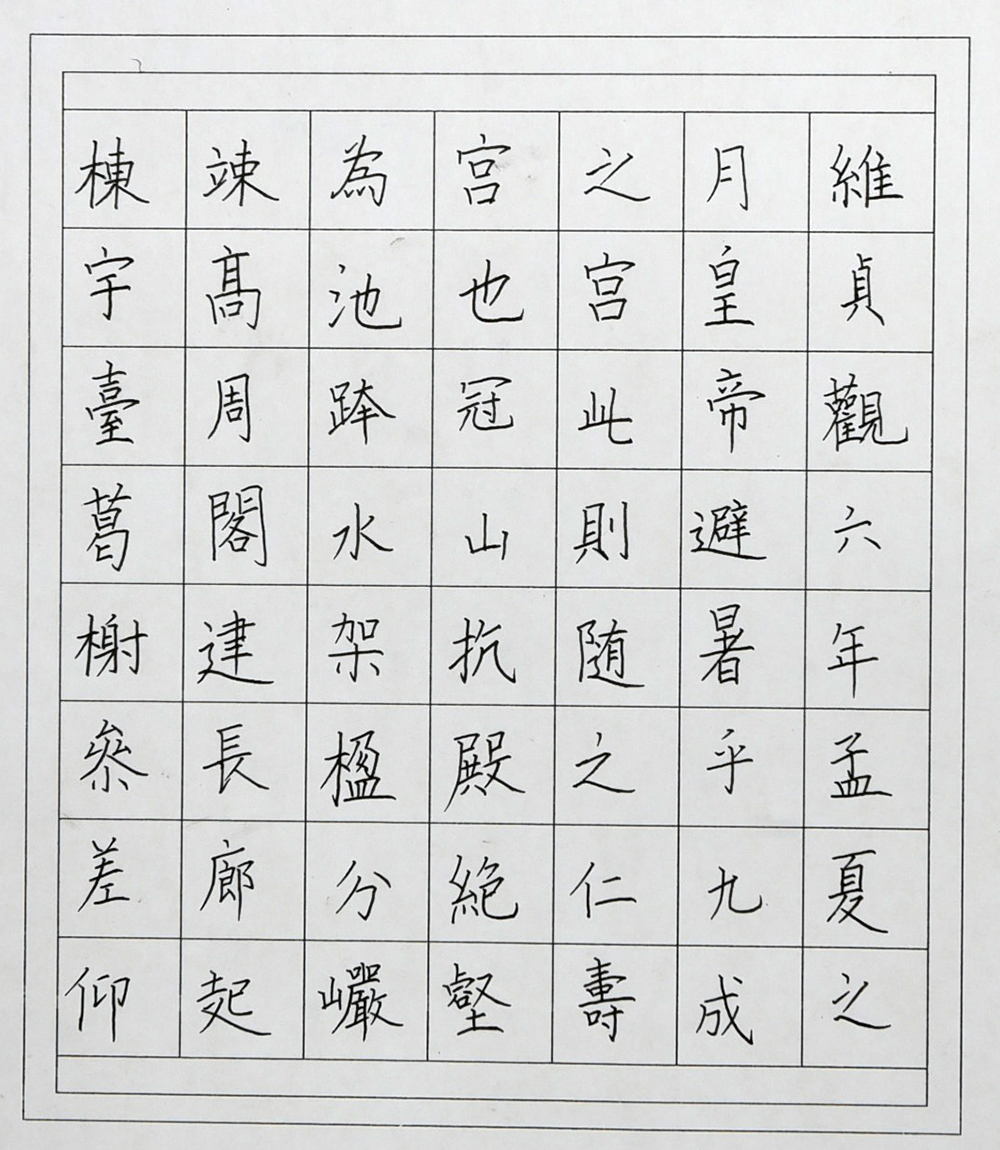 維貞觀六年孟夏之
月皇帝避暑乎九成
之宮此則随之仁壽
宮也冠山抗殿絶壑
為池跨水架楹分巖
竦高周閣建長廊起
棟宇臺葛榭叅差仰